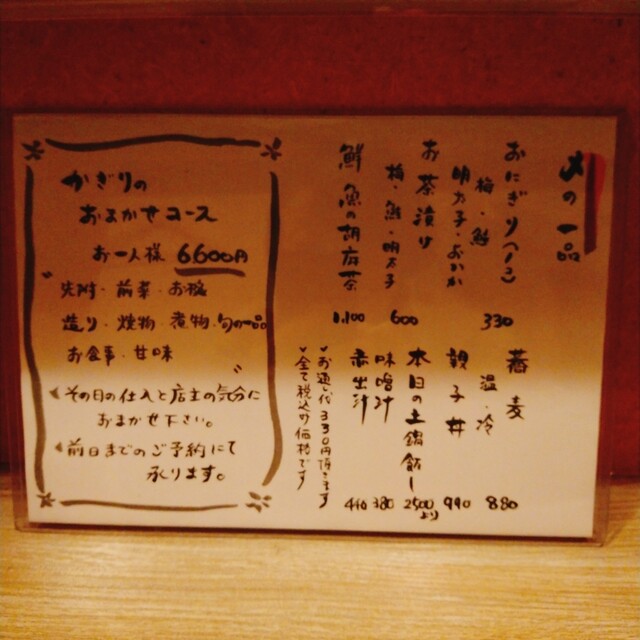 〆の一品
おにぎり(1コ)
梅・鮭
明太子・おかか
330
お茶漬け
梅・鮭・明太子
600
鮮魚の胡麻茶
1,100
蕎麦
温・冷
880
親子丼
990
本日の土鍋飯
2500より
味噌汁
380
赤出汁
440
✓お通し代330円頂きます
✓全て税込の価格です
かぎりの
おまかせコース
お一人様 6600円
"先附・前菜・お椀
造り・焼物・煮物・旬の一品
お食事・甘味"
その日の仕入と店主の気分に
おまかせ下さい。
前日までのご予約にて
承ります。